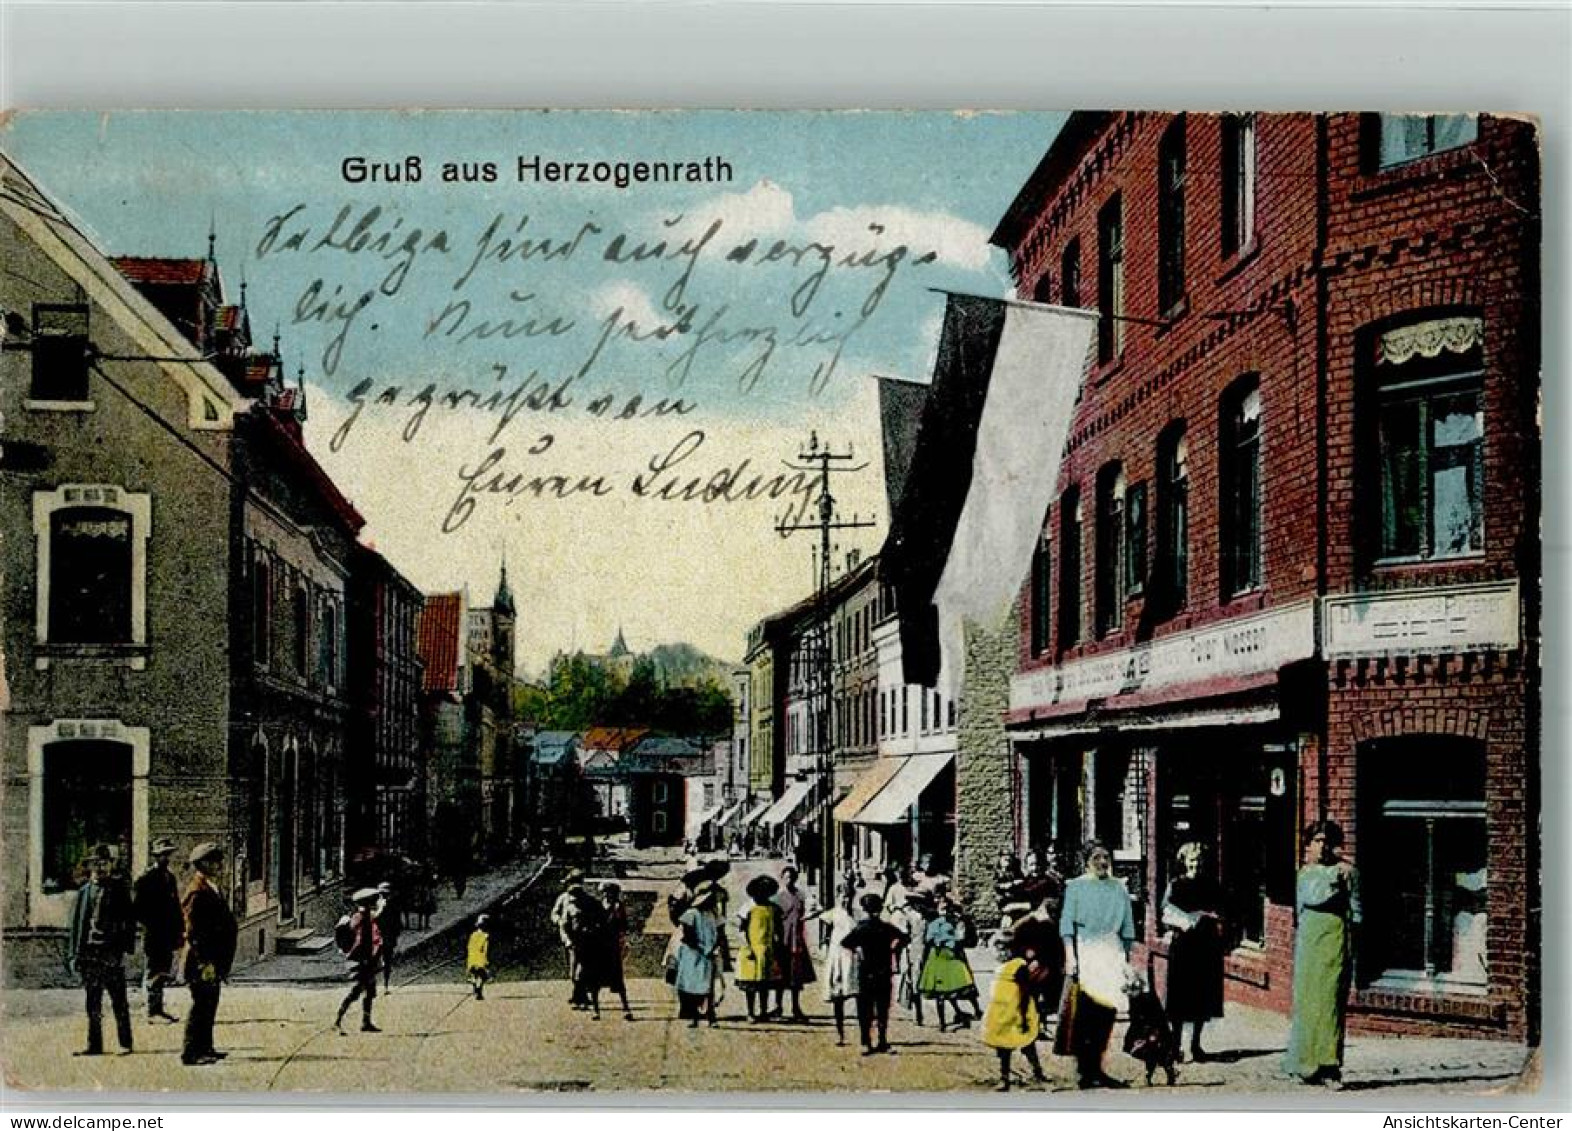 Gruß aus Herzogenrath
Selbige sind auch vorzüg-
lich. Nun seit herzlich
gegrüßt von
Euren Ludwig
Peter Niessen
Ansichtskarten-Center